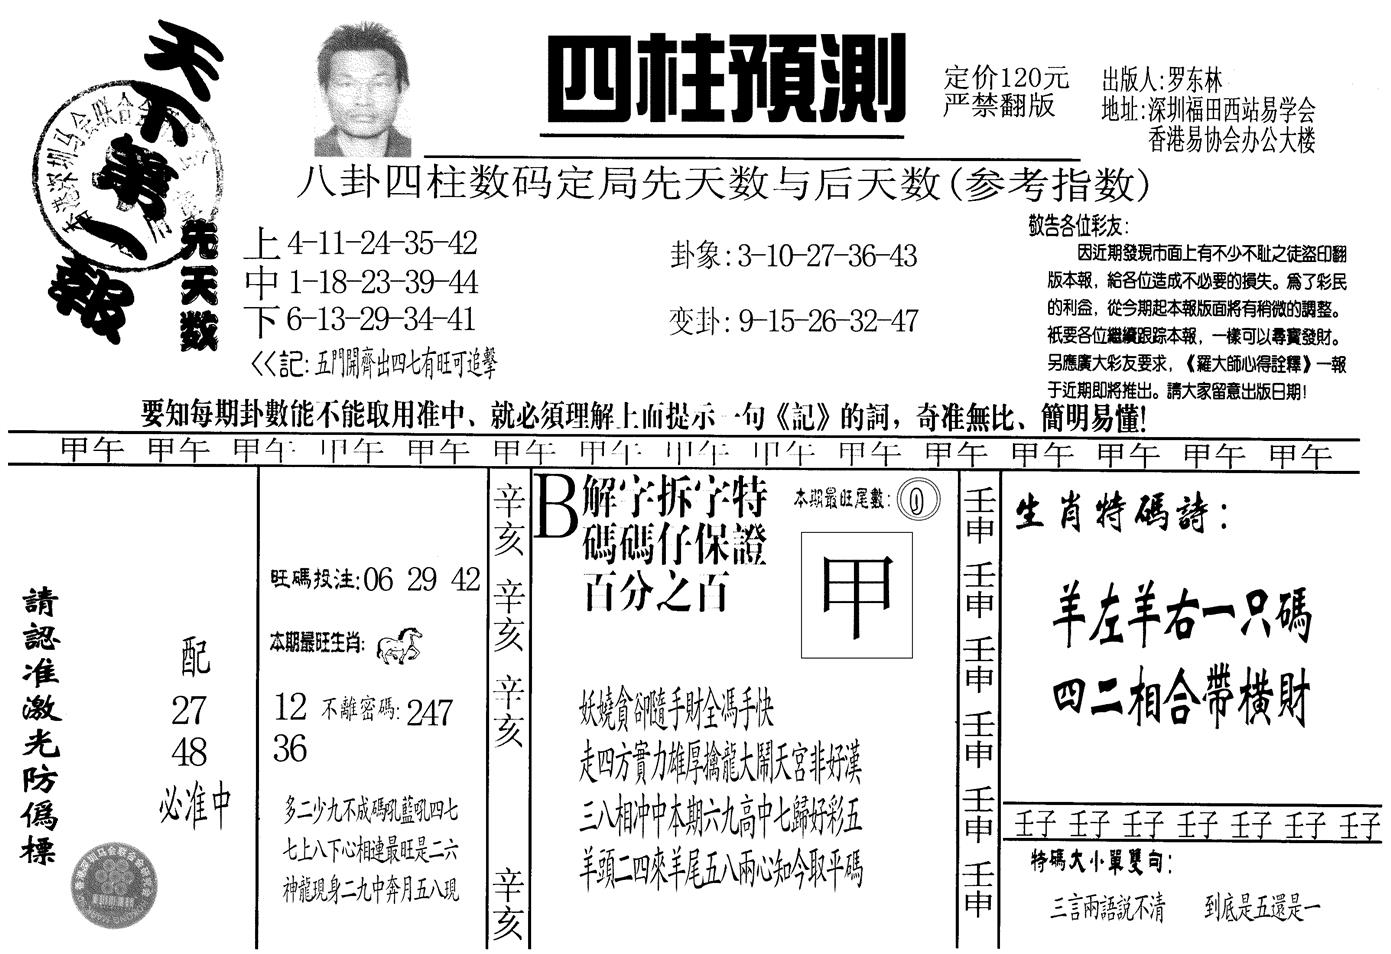 天下第一報
四柱預測
定价120元
严禁翻版
出版人:罗东林
地址:深圳福田西站易学会
香港易协会办公大楼
八卦四柱数码定局先天数与后天数(参考指数)
先天数
上 4-11-24-35-42
中 1-18-23-39-44
下 6-13-29-34-41
<<記: 五門開齊出四七有旺可追擊
卦象: 3-10-27-36-43
变卦: 9-15-26-32-47
敬告各位彩友:
因近期發現市面上有不少不耻之徒盜印翻
版本報, 給各位造成不必要的損失。爲了彩民
的利益, 從今期起本報版面將有稍微的調整。
衹要各位繼續跟踪本報, 一樣可以尋寶發財。
另應廣大彩友要求, 《羅大師心得詮釋》一報
于近期即將推出。請大家留意出版日期!
要知每期卦數能不能取用准中、就必須理解上面提示一句《記》的詞, 奇准無比、簡明易懂!
甲午 甲午 甲午 甲午 甲午 甲午 甲午 甲午 甲午 甲午 甲午 甲午 甲午 甲午 甲午
請認准激光防僞標
配
27
48
必准中
旺碼投注:06 29 42
本期最旺生肖:
12 不離密碼: 247
36
多二少九不成碼吼藍吼四七
七上八下心相連最旺是二六
神龍現身二九中奔月五八現
辛亥 辛亥 辛亥 辛亥
B
解字拆字特
碼碼仔保證
百分之百
本期最旺尾數: 0
甲
妖嬈貪卻隨手財全馮手快
走四方實力雄厚擒龍大鬧天宮非好漢
三八相冲中本期六九高中七歸好彩五
羊頭二四來羊尾五八兩心知今取平碼
壬申 壬申 壬申 壬申 壬申 壬申
生肖特碼詩:
羊左羊右一只碼
四二相合帶橫財
壬子 壬子 壬子 壬子 壬子 壬子 壬子
特碼大小單雙句:
三言兩語説不清 到底是五還是一